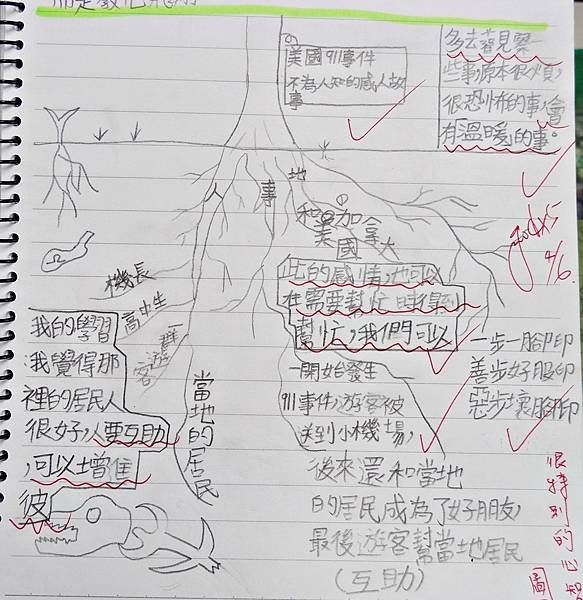 美國911事件
不為人知的感人故
事
多去著見察
些事原本很煩,
很恐怖的事,會
有溫暖的事。
人
事
地
和加拿大
美國
機長
高中生
一群遊客
當地的居民
good x5
4/6
我的學習
我覺得那
裡的居民人
很好,人要互助
,可以增進
彼
此的感情,也可以
在需要幫忙時得到
幫忙,我們可以
一步一腳印
善步好腳印
惡步壞腳印
一開始發生
911事件,遊客被
送到小機場,
後來還和當地
的居民成為了好朋友,
最後遊客幫當地居民
(互助)
很特別的心智圖